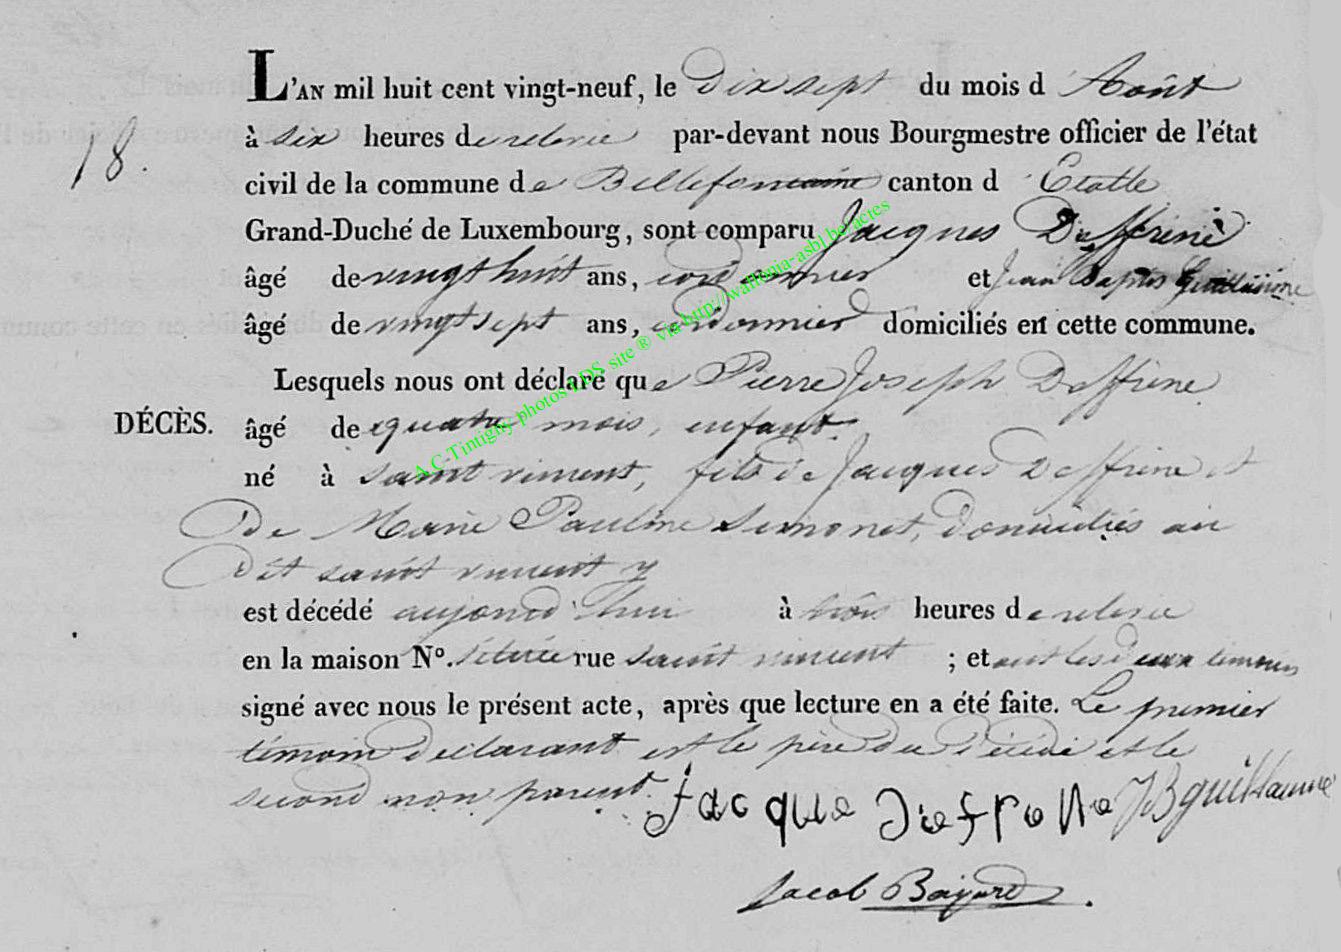 L'AN mil huit cent vingt-neuf, le Dix sept du mois d'Août
18.
à six heures de relevée par-devant nous Bourgmestre officier de l'état
civil de la commune de Bellefontaine canton d'Etalle
Grand-Duché de Luxembourg, sont comparu Jacques Deffrene
âgé de vingt huit ans, cordonnier et Jean Baptis Guillaume
âgé de vingt sept ans, cordonnier domiciliés en cette commune.
Lesquels nous ont déclaré que Pierre Joseph Deffrene
DÉCÈS. âgé de quatre mois, enfant.
né à saint vincent, fils de Jacques Deffrene et
De Marie Pauline Simonet, domiciliés au
Dit saint vincent y
est décédé aujourd'hui à trois heures de relevée
en la maison N°. située rue saint vincent ; et ont les deux témoins
signé avec nous le présent acte, après que lecture en a été faite. Le premier
témoin déclarant est le père du décédé et le
second non parent.
Jacque JBguillaume
Jacob Bajard
A.C.Tintigny photos LDS site ® via http://wallonia-asbl.be/actes